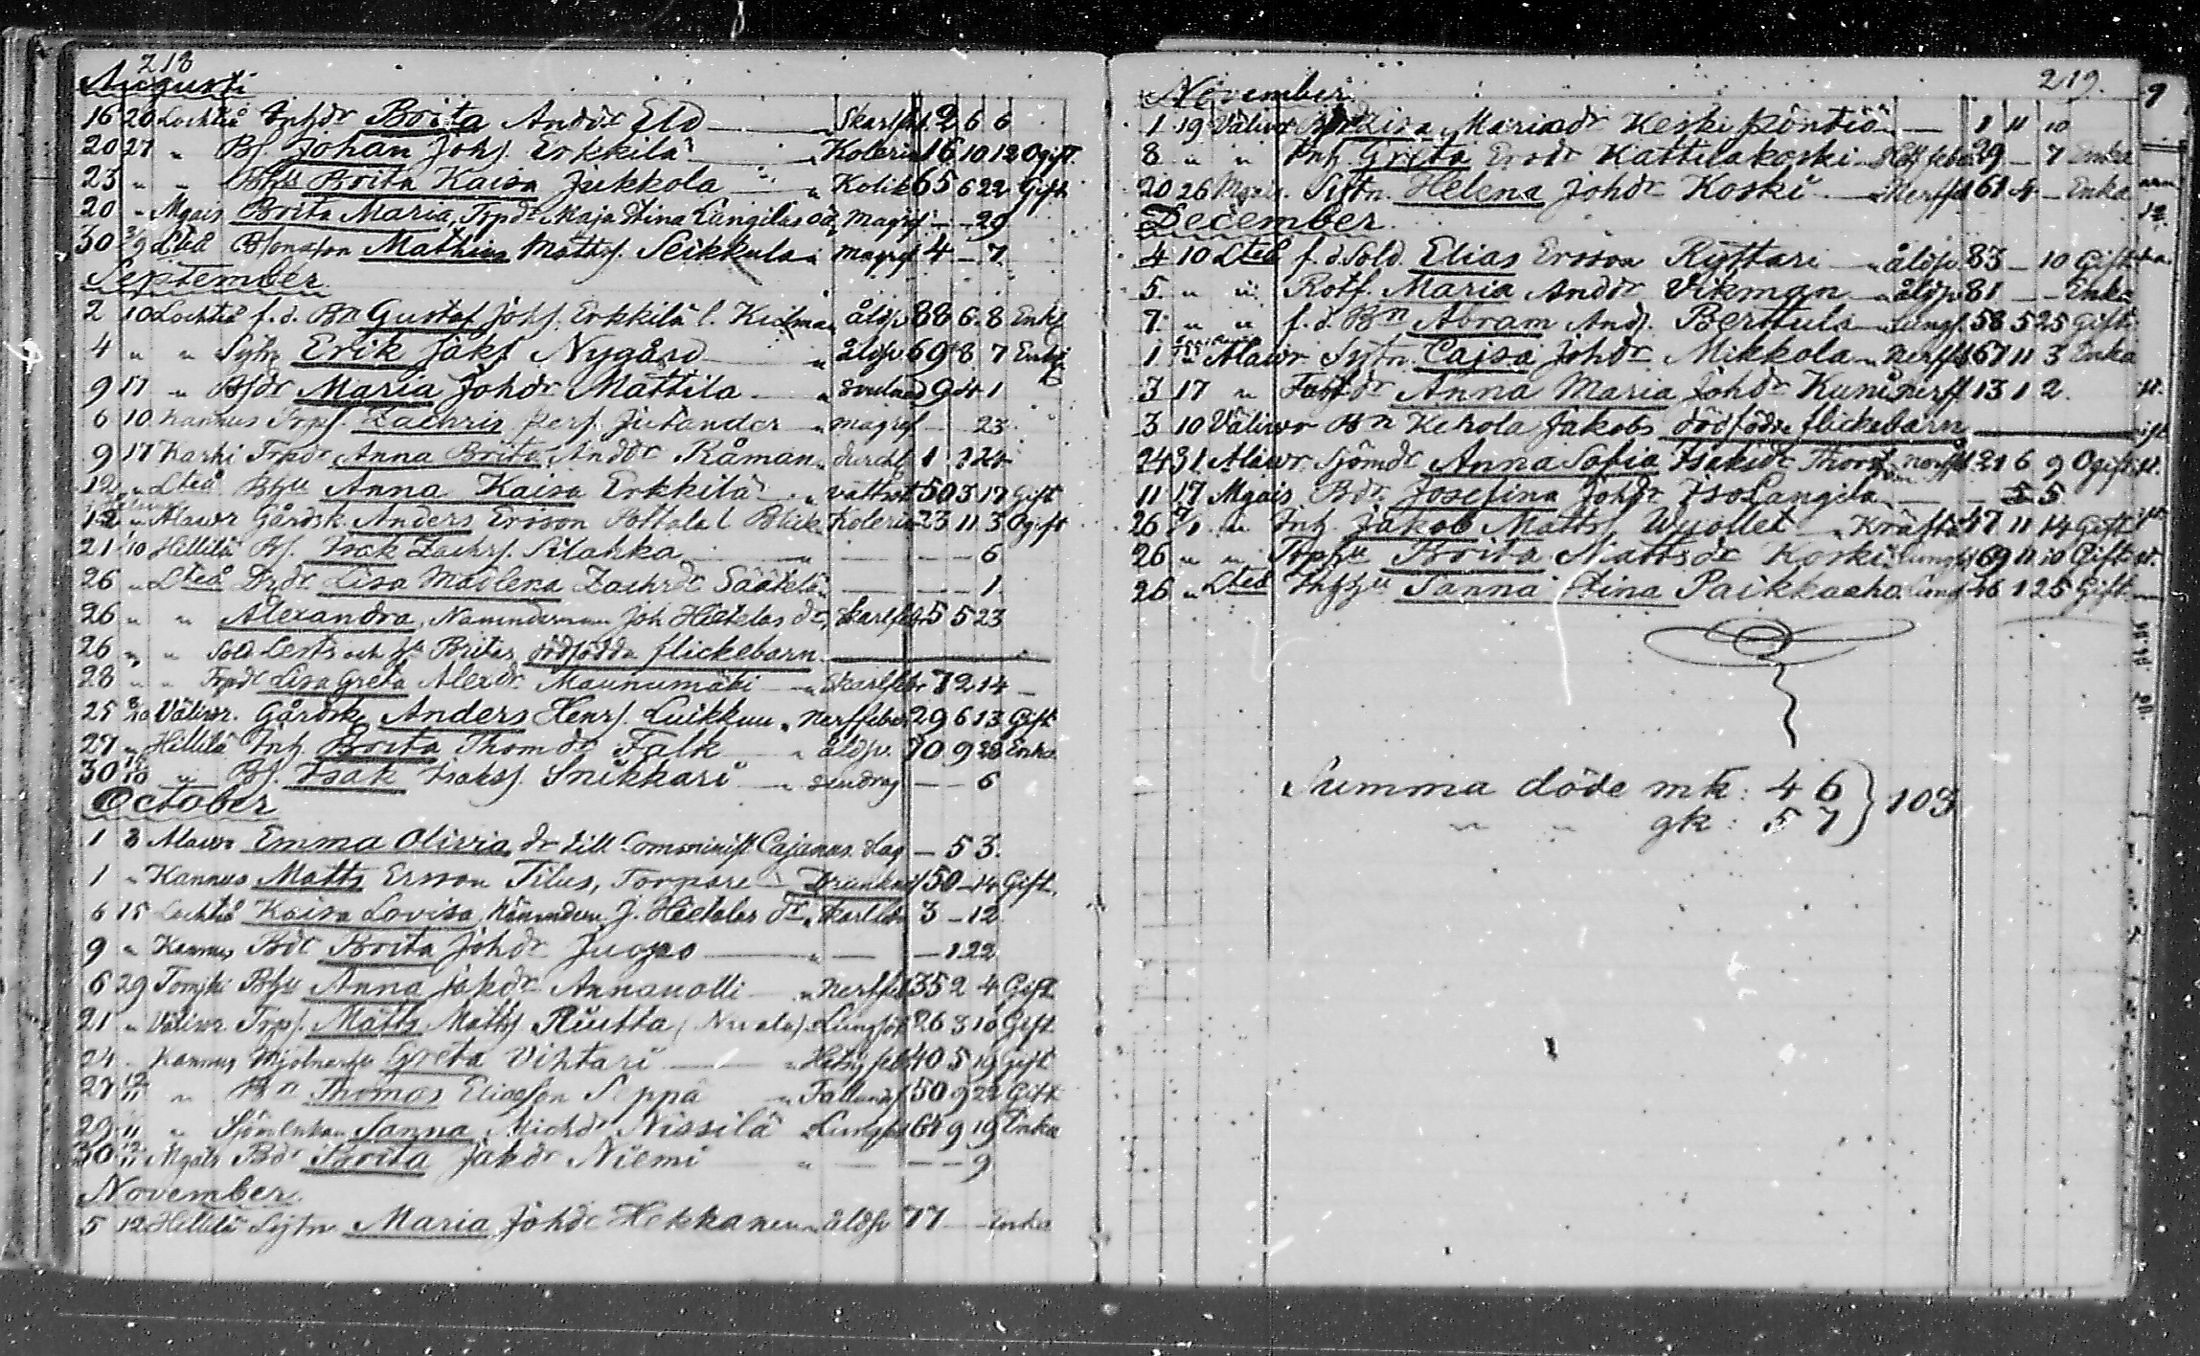 218
Augusti
16 20 Lochteå Inhdr Brita Anddr Eld Skarlf 2 6 6
20 27 " Bs. Johan Johs. Erkkilä " Kolerin 16 10 12 Ogift
23 " " Bhu Brita Kaisa Jukkola " Kolik 65 6 22 Gift
20 " Mgais Brita Maria, Trpdr Maja Stina Langilas oä Magref — — 29
30 3/9 Lteå Bonason Mathias Matts. Seikkula " magref 4 — 7
September
2 10 Lochteå f. d. Bn Gustaf Johs. Erkkilä l. åldr 88 6 8 Enkl
4 " " Sytn Erik Jaks Nygård " åldr 69 8 7 Enkl
9 17 " Bdr Maria Johdr Mattila " 9 4 1
6 10 Kannus Trps. Zachris Pers. Jutander " magref — 23
9 17 Karhi Trpdr Anna Brita Anddr Råman " durchl 1 1 24
12 " Lteå Bhu Anna Kaisa Erkkilä " vattsot 50 3 17 Gift
12 " Alawr Gårdsk. Anders Ersson Pottala l Blick Kolerin 23 11 3 Ogift
21 10 Hillilä Bs. Isak Zachrs. Silahka " — — 6
26 " Lteå Drdr Lisa Madlena Zachrdr Säätelä " — — 1
26 " " Alexandra, Nämndeman Joh Hietalas dr, Skarlfebr 5 5 23
26 " " Sold. Lents och hu Britas dödfödda flickebarn
28 " " Trpdr Lisa Greta Alexdr Maunumäki " Skarlfebr 7 2 14
25 8/10 Väliwr. Gårdsk. Anders Henrs. Luikkuu " Nerffeber 29 6 13 Gift
27 " Hillilä Inh. Brita Thomdr Falk " åldr. 70 9 28 Enka
30 15/10 " Bs. Isak Isakss. Snikkari " 6
October
1 3 Alawr Emma Olivia dr till Comminist. Cajanus slag — 5 3
1 " Kannus Matts Ersson Tilus, Torpare Drunknad 50 — 14 Gift
6 15 Lochteå Kaisa Lovisa, Nämndem. J. Hietalas dr " Skarlfebr 3 — 12
9 " Kannus Bdr Brita Johdr Juopo " — — 1 22
6 29 Tomjki Bhu Anna Jakdr Annauolli " Nerffeb 35 2 4 Gift
21 " Väliwr Trps. Matts Matts Riutta (Nivala) " Lungsot 26 3 10 Gift
24 " Kannus Mjölnarhu Greta Vihtari " Hetsig feb 40 5 19 Gift
27 12/11 " Bn Thomas Eliasson Seppä " Fallandst 50 9 22 Gift
29 " " Sjömenkan Sanna Michdr Nissilä " Lungsot 64 9 19 Enka
30 12/11 Mgais Bdr Brita Jakdr Niemi " — — 9
November.
5 12 Hillilä Sytn Maria Johdr Hekkanen " åldr 77 — — Enka
219.
November
1 19 Väliwr Lisa Mariadr Keski Pöntiö — 1 11 10
8 " " Inh. Greta Ersdr Kattilakoski " feber 29 — 7 Enka
20 26 Mgais. Sytn. Helena Johdr Koski Nerff 61 4 — Enka
December
4 10 Lteå f. d. Sold. Elias Ersson Ryttari " åldr 83 — 10 Gift
5 " " Rotf. Maria Anddr Vikman " åldr 81 — — Enka
7 " " f. d. Bn Abram Ands. Berttula " Lungs. 58 5 25 Gift
1 " Alawr Sytn. Cajsa Johdr Mikkola " Nerff 67 11 3 Enka
3 17 " Anna Maria Johdr Kuni nerff 13 1 2
3 10 Väliwr Bn Kehola Jakobs dödfödda flickebarn
24 31 Alawr. Sjömdr Anna Sofia Isaksdr nerff 21 6 9 Ogift
11 17 Mgais Bdr Josefina Johdr IsoLangila — — 5 5
26 7/1 " Inh. Jakob Matts Wuollet " Kräfta 47 11 14 Gift
26 " " Trphu Brita Mattsdr Koski Lungs 69 11 10 Gift
26 " Lteå Sanna Stina Paikkaaho Lung 46 1 25 Gift
Summa döde mk: 46 } 103
" " gk: 57